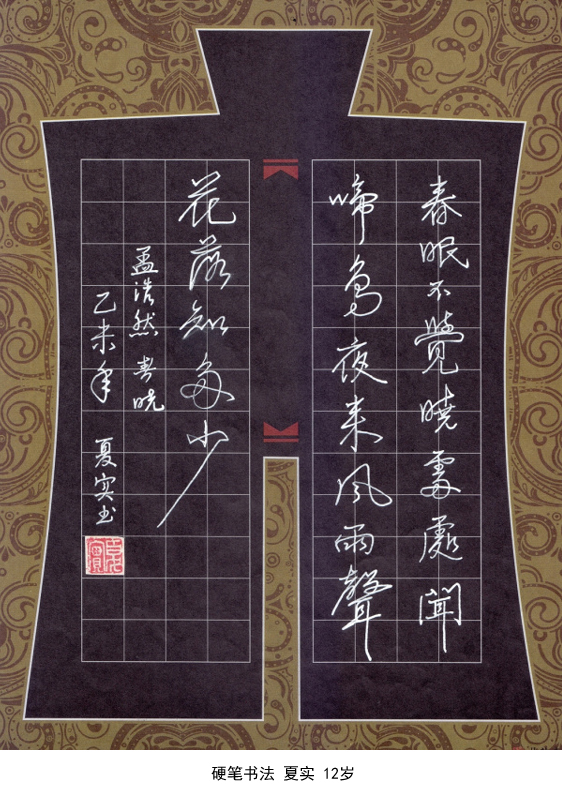 春眠不覺曉處處聞
啼鳥夜来風雨聲
花落知多少
孟浩然 春晓
乙未年 夏实书
硬笔书法 夏实 12岁